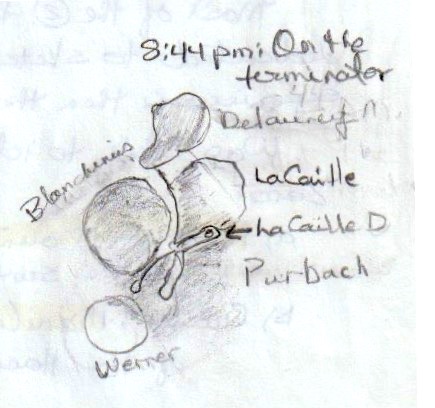 8:44 pm: On the
terminator
Delauney
Blanchinus
LaCaille
LaCaille D
Purbach
Werner